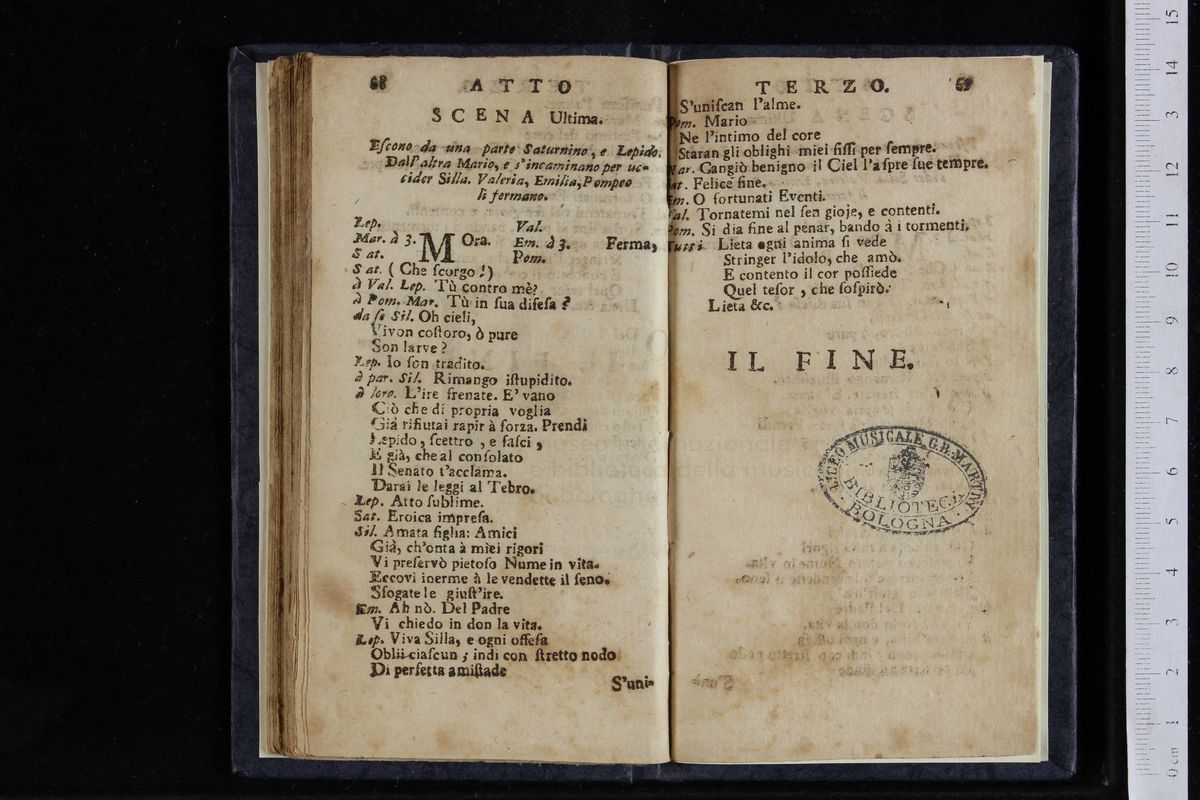 68 ATTO
SCENA Ultima.
Eſcono da una parte Saturnino, e Lepido.
Dall'altra Mario, e s'incaminano per uc-
cider Silla. Valeria, Emilia, Pompeo
li fermano.
Lep. Val.
Mar. à 3. MOra. Em. à 3. Ferma,
Sat. Pom.
Sat. (Che ſcorgo!)
à Val. Lep. Tù contro mè?
à Pom. Mar. Tù in ſua difeſa?
da ſe Sil. Oh cieli,
Vivon coſtoro, ò pure
Son larve?
Lep. Io ſon tradito.
à par. Sil. Rimango iſtupidito.
à loro. L'ire frenate. E' vano
Ciò che di propria voglia
Già rifiutai rapir à forza. Prendi
Lepido, ſcettro, e faſci,
E già, che al conſolato
Il Senato t'acclama.
Darai le leggi al Tebro.
Lep. Atto ſublime.
Sat. Eroica impreſa.
Sil. Amata figlia: Amici
Già, ch'onta à miei rigori
Vi preſervò pietoſo Nume in vita.
Eccovi inerme à le vendette il ſeno.
Sfogate le giuſt'ire.
Em. Ah nò. Del Padre
Vi chiedo in don la vita.
Lep. Viva Silla, e ogni offeſa
Oblii ciaſcun; indi con ſtretto nodo
Di perfetta amiſtade
S'uni-
TERZO. 69
S'uniſcan l'alme.
Pom. Mario
Ne l'intimo del core
Staran gli oblighi miei fiſſi per ſempre.
Mar. Cangiò benigno il Ciel l'aſpre ſue tempre.
Sat. Felice fine.
Em. O fortunati Eventi.
Val. Tornatemi nel ſen gioje, e contenti.
Pom. Si dia fine al penar, bando à i tormenti.
Tutti Lieta ogni anima ſi vede
Stringer l'idolo, che amò.
E contento il cor poſſiede
Quel teſor, che ſoſpirò.
Lieta &c.
IL FINE.
LICEO MUSICALE G.B. MARTINI
BIBLIOTECA
BOLOGNA